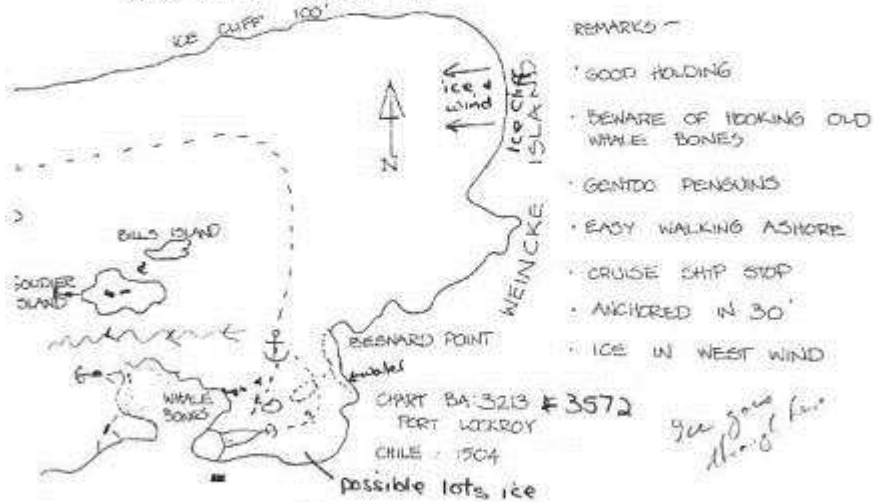 ICE CLIFF 100'
ice &
wind
Ice Cliff
ISLAND
WEINCKE
N
BILLS ISLAND
GOUDIER
ISLAND
BESNARD POINT
water
WHALE
BONES
CHART BA: 3213 & 3572
PORT LOCKROY
CHILE : 1504
possible lots, ice
REMARKS -
· GOOD HOLDING
· BEWARE OF HOOKING OLD
WHALE BONES
· GENTOO PENGUINS
· EASY WALKING ASHORE
· CRUISE SHIP STOP
· ANCHORED IN 30'
· ICE IN WEST WIND